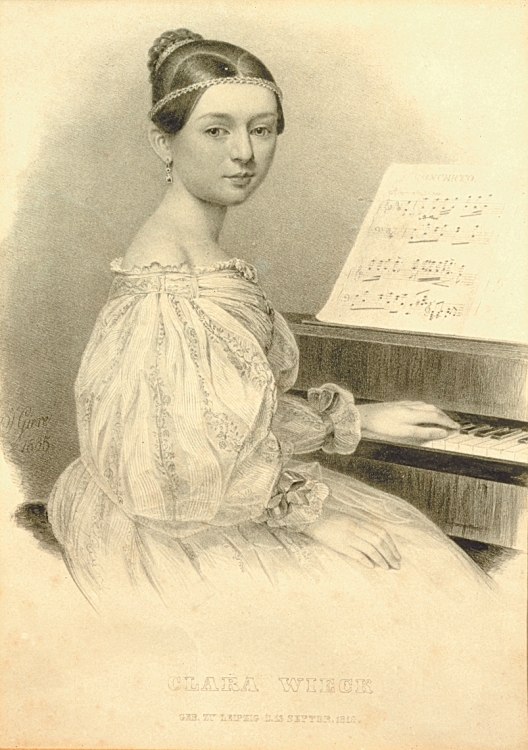 CONCERTO.
Giere
1835
CLARA WIECK
GEB. ZU LEIPZIG D. 13 SEPTBR. 1819.